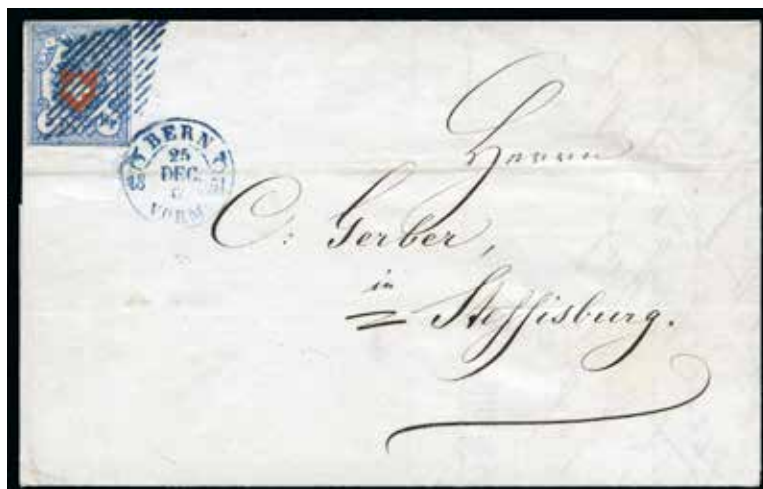 BERN
25
DEC.
18 51
VORM
Herrn
C: Gerber,
in
Steffisburg.